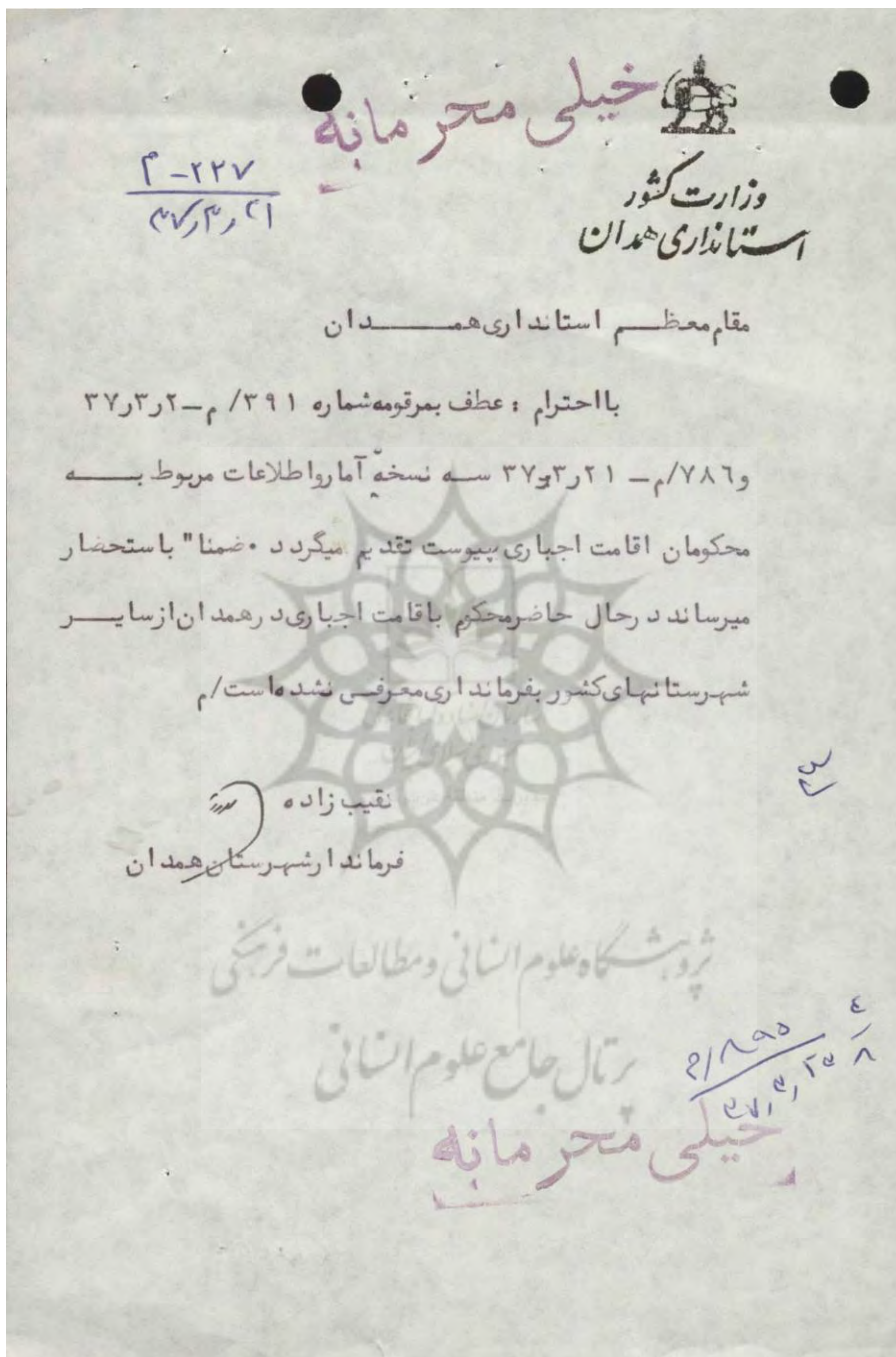 خیلی محرمانه
۲۲۷-م
۳۷٫۳٫۲۱
وزارت کشور
استانداری همدان
مقام معظم استانداری همدان
بااحترام : عطف بمرقومه شماره ۳۹۱/م-۲ر۳ر۳۷
و۷۸۶/م-۲۱ر۳ر۳۷ سه نسخه آمارواطلاعات مربوط به
محکومان اقامت اجباری پیوست تقدیم میگردد . ضمنا" باستحضار
میرساند درحال حاضرمحکوم باقامت اجباری درهمدان ازسایر
شهرستانهای کشور بفرمانداری معرفی نشده است/م
نقیب زاده
فرماندارشهرستان همدان
پژوهشگاه علوم انسانی و مطالعات فرهنگی
پرتال جامع علوم انسانی
م/۸۹۵
خیلی محرمانه